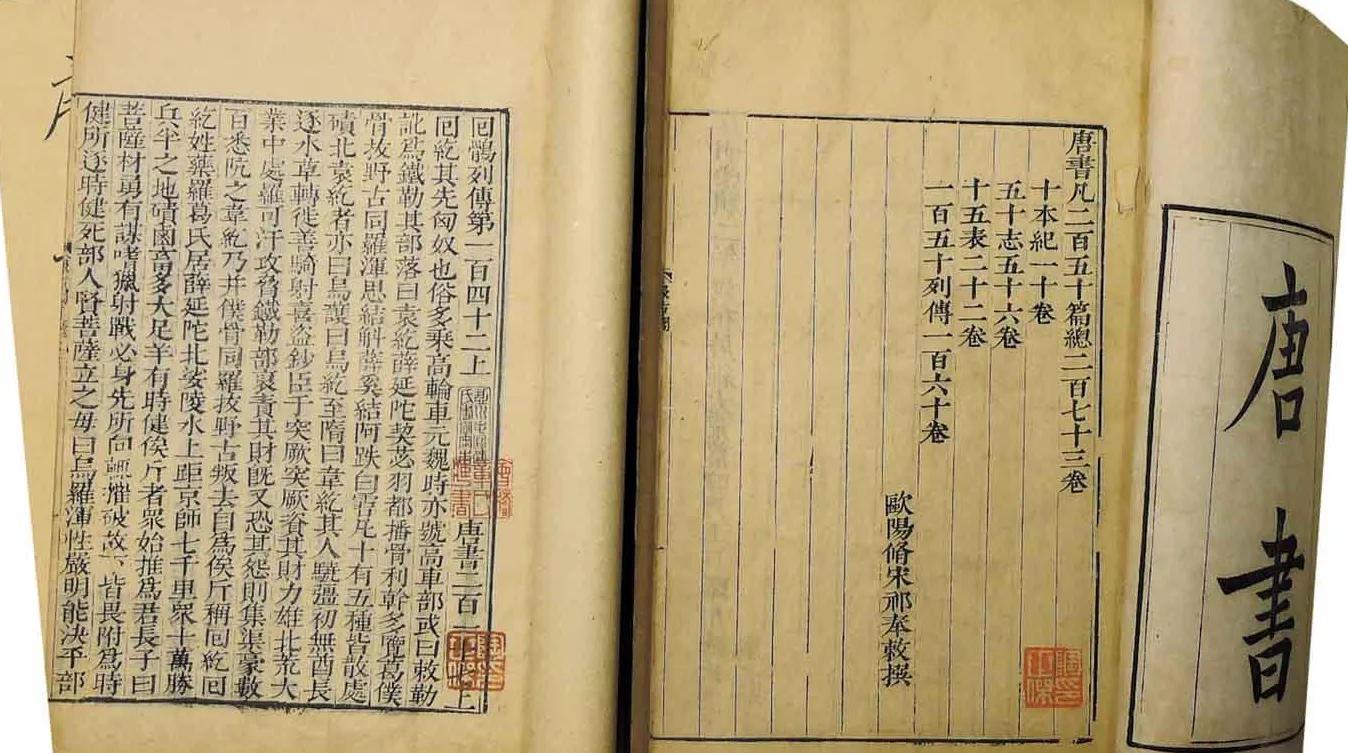 唐書
唐書凡二百五十篇總二百七十三卷
十本紀一十卷
五十志五十六卷
十五表二十二卷
一百五十列傳一百六十卷
歐陽脩宋祁奉敕撰
囘鶻列傳第一百四十二上 唐書二百一十七上
囘紇其先匈奴也俗多乘高輪車元魏時亦號高車部或曰敕勒
訛爲鐵勒其部落曰袁紇薛延陀契苾羽都播骨利幹多覽葛僕
骨拔野古同羅渾思結斛薛奚結阿跌白霫凡十有五種皆散處
磧北袁紇者亦曰烏護曰烏紇至隋曰韋紇其人驍彊初無酋長
逐水草轉徙善騎射喜盜鈔臣于突厥突厥資其財力雄北荒大
業中處羅可汗攻脅鐵勒部裒責其財旣又恐其怨則集渠豪數
百悉阬之韋紇乃并僕骨同羅拔野古叛去自爲俟斤稱囘紇囘
紇姓藥羅葛氏居薛延陀北娑陵水上距京師七千里衆十萬勝
兵半之地磧鹵畜多大足羊有時健俟斤者衆始推爲君長子曰
菩薩材勇有謀嗜獵射戰必身先所向輒摧破故下皆畏附爲時
健所逐時健死部人賢菩薩立之母曰烏羅渾性嚴明能決平部